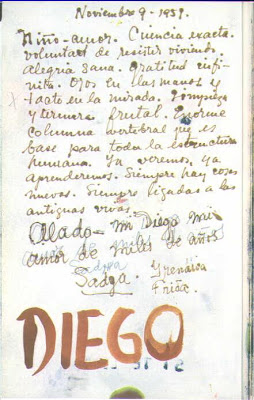 Noviembre 9 - 1951.
Niño-amor. Ciencia exacta.
voluntad de resistir viviendo
alegria sana. Gratitud infi-
nita. Ojos en las manos y
tacto en la mirada. Limpieza
y ternura frutal. Enorme
columna vertebral que es
base para toda la estructura
humana. Ya veremos, ya
aprenderemos. Siempre hay cosas
nuevas. Siempre ligadas a las
antiguas vivas.
Alado - mi Diego mi
amor de miles de años
Sadga. Yrenáica
Frida.
DIEGO